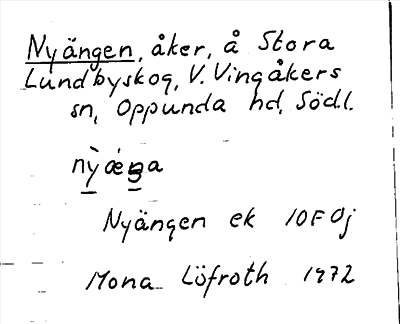 Nyängen, åker, å Stora
Lundbyskog, V. Vingåkers
sn, Oppunda hd, Södl.
nỳǽŋa
Nyängen ek 10F0j
Mona Löfroth 1972